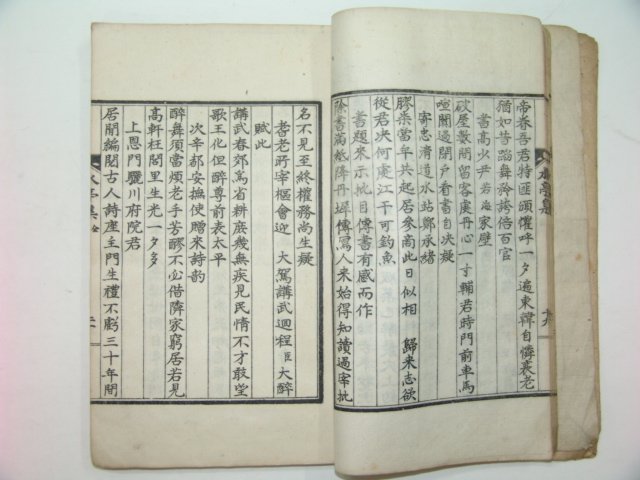 帝眷吾君特匪頒懽呼一夕遍東韓自憐衰老
猶如昔蹈舞矜誇倍百官
書高少尹若海家壁
破屋數間留客處丹心一寸輔君時門前車馬
喧闐過閉戶看書自決疑
寄忠淸道水站鄭承緒
膠柒當年共起居參商此日似相 歸来志欲
從君決何處江干可釣魚
書題来示批目傳書有感而作
除書滿紙降丹墀傳寫人来始得知讀過宰批
名不見至終權務尚生疑
耆老所宰樞會迎 大駕講武迴程臣大醉
賦此
講武春郊爲省耕庶幾無疾見民情不才敢望
歌王化但醉尊前表太平
次辛都安撫使贈来詩韵
醉舞須當煩老手芳醪不必借隣家窮居若見
高軒枉閭里生光一夕多
上恩門驪川府院君
居閒編閱古人詩座主門生禮不虧三十年間
亭集